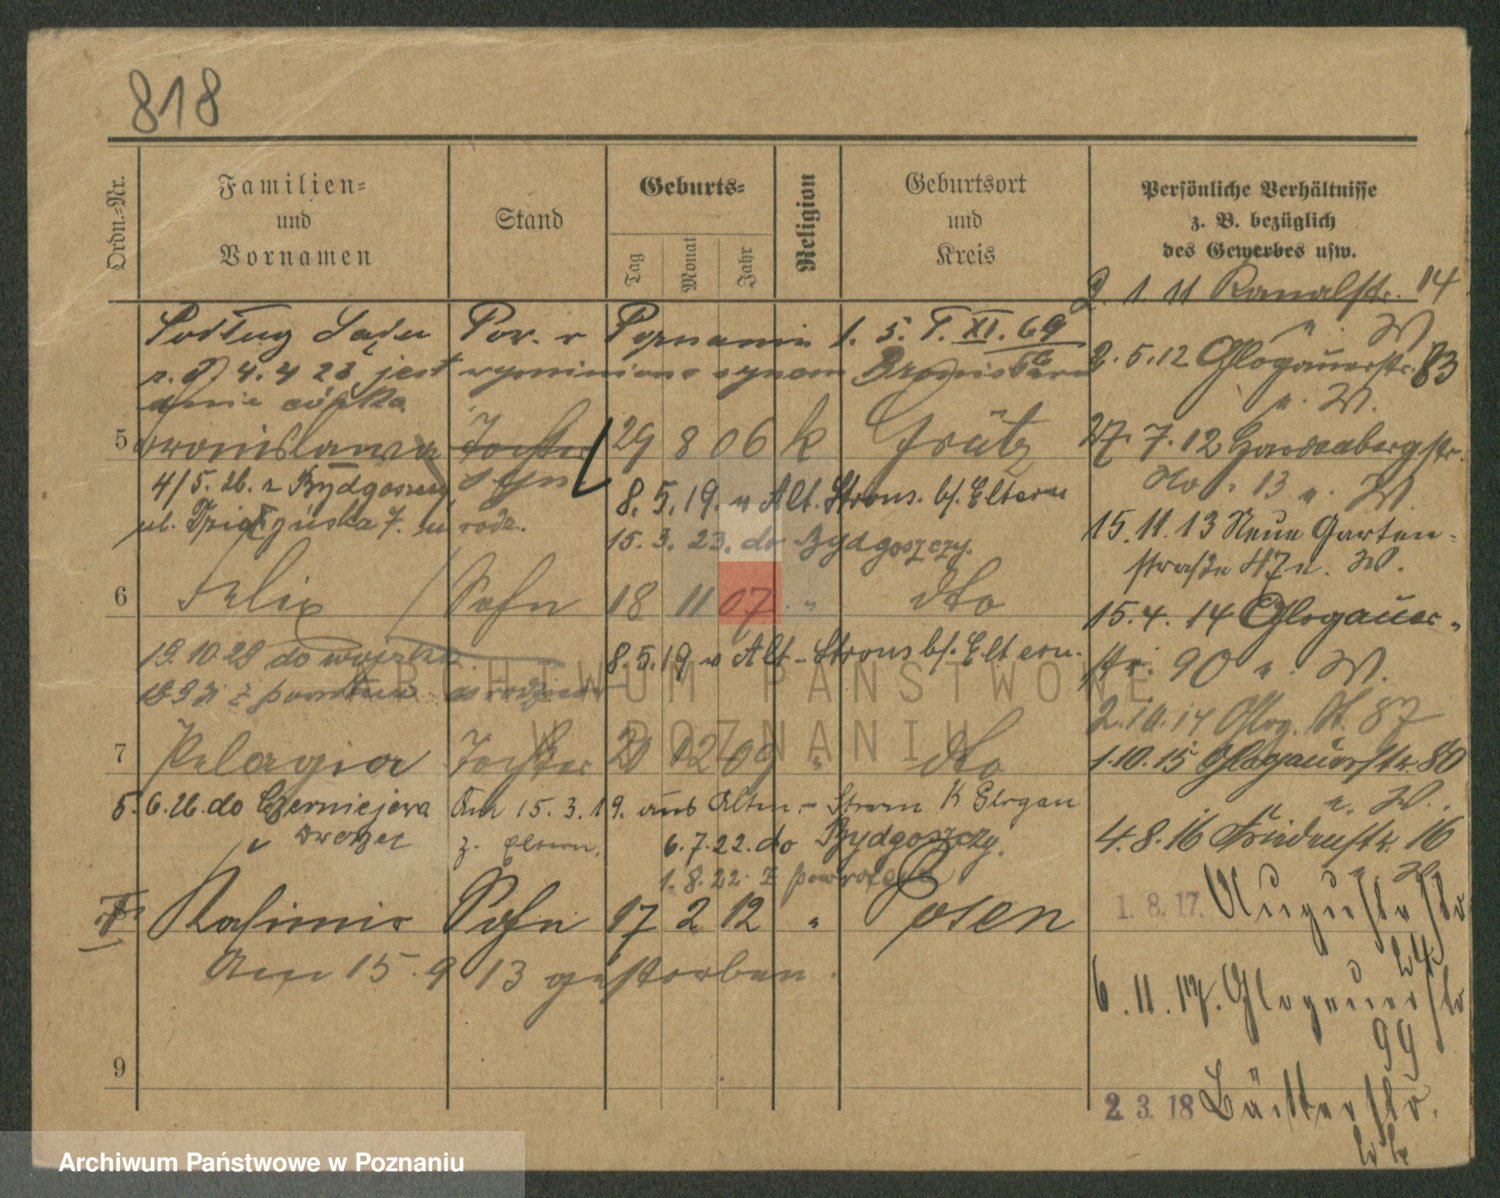 818
Ordn.-Nr.
Familien-
und
Vornamen
Stand
Geburts-
Tag
Monat
Jahr
Religion
Geburtsort
und
Kreis
Persönliche Verhältnisse
z. B. bezüglich
des Gewerbes usw.
2. 1. 11 Kanalstr. 14
u. W.
Podług Sądu Pow. w Poznaniu 1. 5. T. XI. 69
z. d. 4. 4 23 jest wymieniona synem Bronisława
a nie córka
2. 5. 12 Glogauerstr. 83
u. W.
5 Bronislawa Tochter 29 8 06 k Grätz
syn
27. 7. 12 Hardenbergstr.
No. 13 u. W.
4/5. 26. z Bydgoszczy
ul. 7. u rodz.
8. 5. 19. n Alt. Strons. bf. Eltern
15. 3. 23. do Bydgoszczy.
15. 11. 13 Neue Garten-
straße 47 u. W.
6 Felix Sohn 18 11 07 " dto
15. 4. 14 Glogauer-
str. 90 u. W.
19. 10. 29 do wojska
8. 5. 19 n Alt-Strons bf. Eltern.
z powrotem
2. 10. 14 Glog. St. 87
7 Pelagia Tochter 20 12 09 " dto
1. 10. 15 Glogauerstr. 80
u. W.
5. 6. 26. do Czerniejewa
Am 15. 3. 19. aus Alten- K Glogau
z. Eltern.
6. 7. 22. do Bydgoszczy.
1. 8. 22. z powrotem
4. 8. 16 Friedenstr. 16
u. W.
Kasimir Sohn 17 2 12 " Posen
Am 15. 9 13 gestorben.
1. 8. 17. Augustastr
24.
6. 11. 17. Glogauerstr
99
9
2. 3. 18
ARCHIWUM PAŃSTWOWE
W POZNANIU
Archiwum Państwowe w Poznaniu